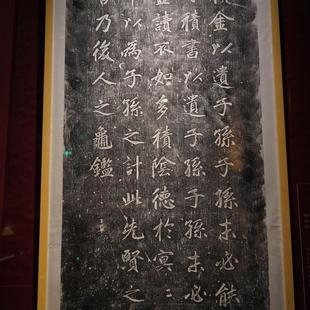 金以遺于孫子孫未必能
積書以遺于孫子孫未必
讀不如多積陰德於冥〻
以為子孫之計此先賢之
乃後人之龜鑑